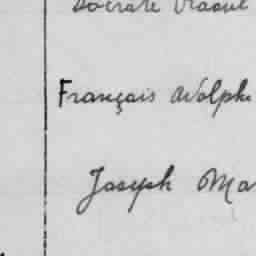 Socrate Raoul
François Adolphe
Joseph Ma